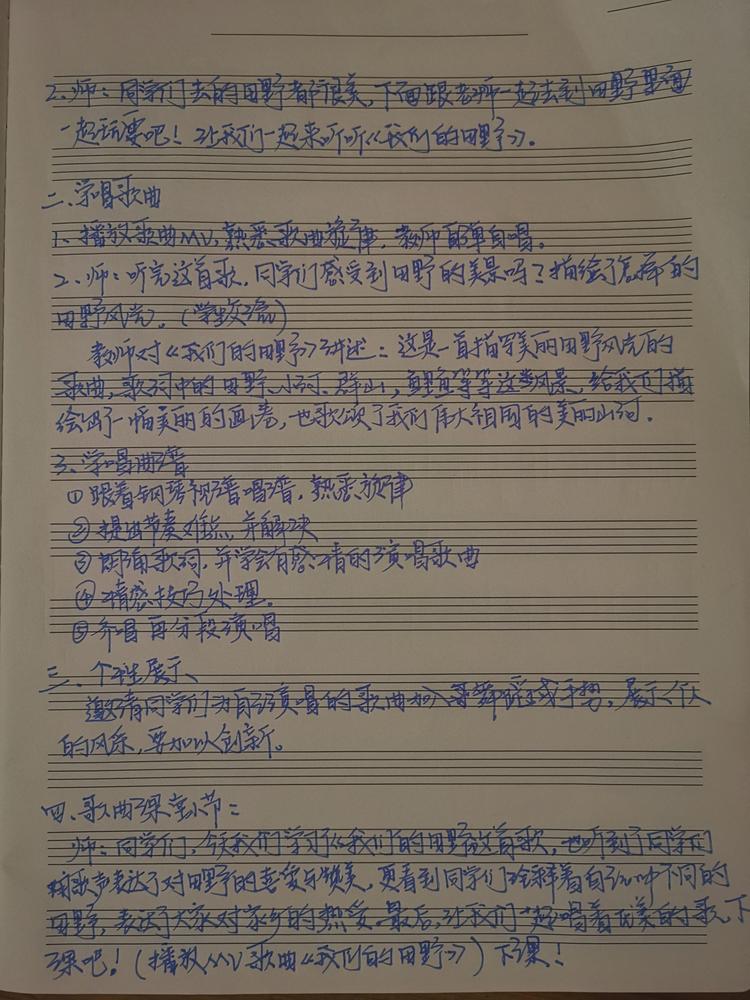 2、师：同学们去的田野都很美，下面跟老师一起去到田野里面
一起玩耍吧！让我们一起来听听《我们的田野》。
二、学唱歌曲
1、播放歌曲MV，熟悉歌曲旋律，教师自弹自唱。
2、师：听完这首歌，同学们感受到田野的美景吗？描绘了怎样的
田野风光。（学生交流）
教师对《我们的田野》讲述：这是一首描写美丽田野风光的
歌曲，歌词中的田野、小河、群山，鱼等等这类风景，给我们描
绘出了一幅美丽的画卷，也歌颂了我们伟大祖国的美丽山河。
3、学唱曲谱
①跟着钢琴视谱唱谱，熟悉旋律
②提出节奏难点，并解决
③朗诵歌词，并学会有感情的演唱歌曲
④情感技巧处理。
⑤齐唱再分段演唱
三、个性展示、
邀请同学们为自己演唱的歌曲加入舞蹈或手势，展示个人
的风采，要加以创新。
四、歌曲课堂小节：
师：同学们，今天我们学习了《我们的田野》这首歌，也听到了同学们
用歌声表达了对田野的喜爱与赞美，更看到同学们诠释着自己心中不同的
田野，表达了大家对家乡的热爱。最后，让我们一起唱着优美的歌，下
课吧！（播放MV歌曲《我们的田野》）下课！